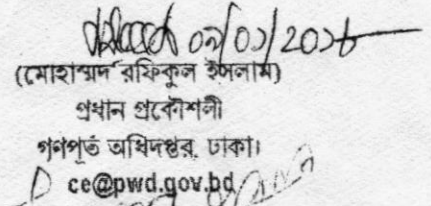 ০৯/০১/২০১৮
(মোহাম্মদ রফিকুল ইসলাম)
প্রধান প্রকৌশলী
গণপূর্ত অধিদপ্তর, ঢাকা।
ce@pwd.gov.bd